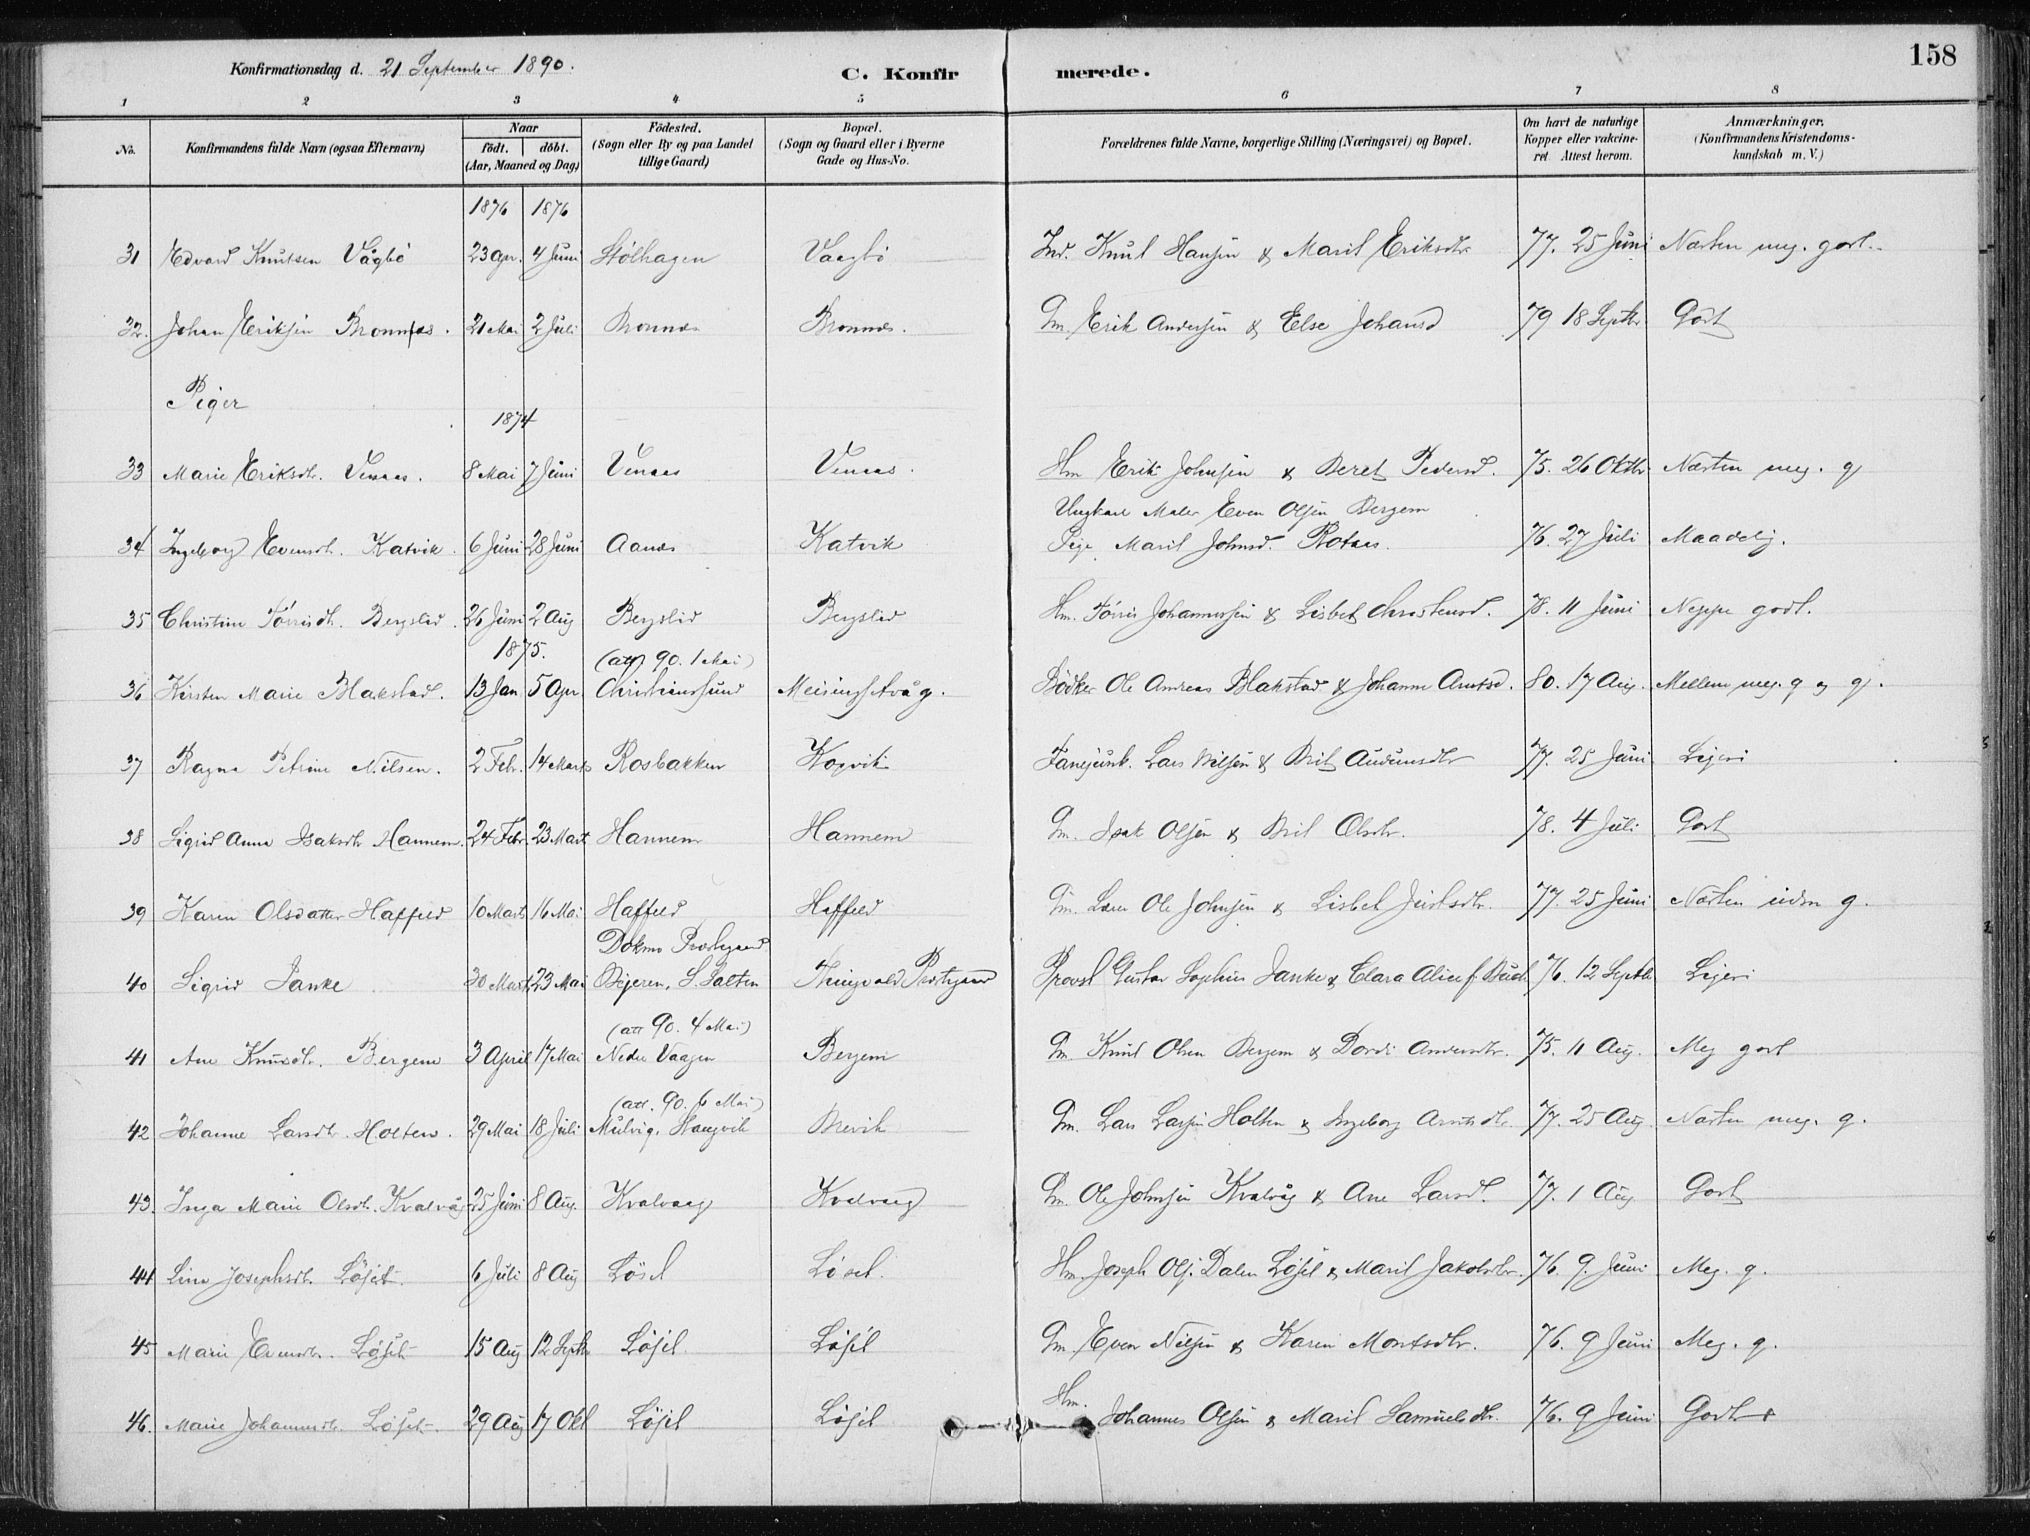 Konfirmationsdag d. 21 September 1890. C. Konfirmerede. 158
1 2 3 4 5 6 7 8
No. Konfirmandens fulde Navn (ogsaa Efternavn) Naar født. døbt. (Aar, Maaned og Dag) Fødested. (Sogn eller By og paa Landet tillige Gaard) Bopæl. (Sogn og Gaard eller i Byerne Gade og Hus-No. Forældrenes fulde Navne, borgerlige Stilling (Næringsvei) og Bopæl. Om havt de naturlige Kopper eller vakcineret. Attest herom. Anmærkninger. (Konfirmandens Kristendomskundskab m. V.)
1876 1876
31 Edvard Knutsen Vågbø 23 Apr. 4 Juni Stølhagen Vaagbø Ind. Knut Hansen & Marit Eriksdtr. 77. 25 Juni Næsten meg. godt.
32. Johan Eriksen Bronnæs. 21 Mai 2 Juli Bronnæs Bronnæs. Gm. Erik Andersen & Else Johansd 79 18 Septbr. Godt
Piger
1874
33 Marie Eriksdtr. Venaas. 8 Mai 7 Juni Venaas Venaas. Hm Erik Johnsen & Beret Pedersd. 75. 26 Oktbr. Næsten meg. g
Ungkarl Maler Even Olsen Bergem
34 Ingeborg Evensdtr. Katvik. 6 Juni 28 Juni Aanæs Katvik Pige Marit Johnsd. Rotaas. 76. 27 Juli Maadelig.
35 Christine Tørrisdtr. Bergslid. 26 Juni 2 Aug Bergslid Bergslid Hm. Tørris Johannessen & Lisbet Christensd. 78. 11 Juni Neppe godt.
1875. (att) 90. 1 Mai)
36 Kirsten Marie Blakstad. 13 Jan 5 Apr. Christianssund Meisingsetvåg. Bødker Ole Andreas Blakstad & Johanne Arntsd. 80. 17 Aug. Mellem meg. g og g.
37 Ragna Petrine Nilsen. 2 Febr. 14 Marts Rosbakken Kogvik Fanejunk. Lars Nilsen & Brit Audunsdtr 77. 25 Juni Ligesi
38 Sigrid Anna Isaksdtr Hannem. 24 Febr. 23 Marts Hannem Hannem Gm. Isak Olsen & Brit Olsdtr. 78. 4 Juli Godt
39 Karen Olsdatter Haffeld 10 Marts 16 Mai Haffeld Haffeld Gm. Ole Johnsen & Lisbet 77. 25 Juni Næsten g.
Dokmo Prestegaard
40 Sigrid Janke 30 Marts 23 Mai Bejeren, S. Salten Thingvold Prestegaard Provst Gustav Sophus Janke & Clara Alice f. Buch 76. 12 Septbr.
(att 90. 4 Mai)
41 Ane Knudsdtr. Bergem 3 April 17 Mai Nedre Vaagen Bergem Gm. Knut Olsen Bergem & Dordi Andersdtr. 75. 11 Aug. Meg godt
(att. 90. 6 Mai)
42 Johanne Larsdtr. Holten. 29 Mai 18 Juli Mulvig, Stangvik Brevik Gm. Lars Larsen Holten & Ingeborg Arntsdtr 77. 25 Aug. Næsten meg. g.
43. Inga Marie Olsdtr. Kvalvåg 25 Juni 8 Aug. Kvalvaag Kvalvaag Gm. Ole Johnsen Kvalvåg & Ane Larsd. 77. 1 Aug Godt
44 Line Josephsdtr. Løset. 6 Juli 8 Aug Løset Løset. Hm. Joseph Ols. Dalen Løset & Marit Jakobsdtr. 76. 9. Juni Meg. g.
45 Marie Evensdtr. Løset 15 Aug 12 Septbr Løset. Løset Gm. Even Nilsen & Karen Montsdtr. 76. 9 Juni Meg. g.
46. Marie Johannesdtr. Løset. 29 Aug 17 Okt Løset Løset Hm. Johannes Olsen & Marit Samuelsdtr. 76. 9 Juni Godt